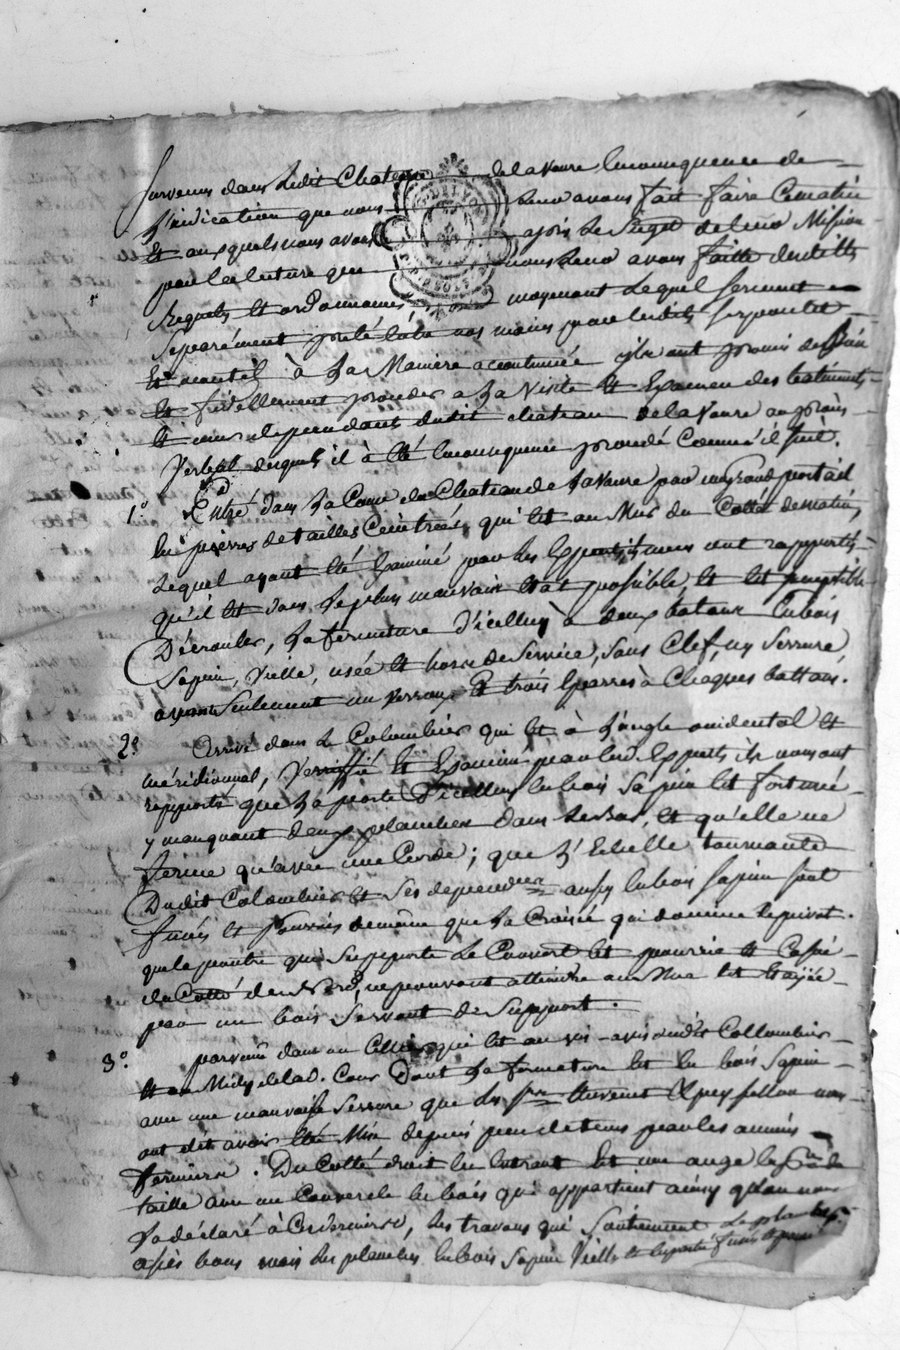 survenus dans ledit Chateau de la vaure en consequence de
l'indication que nous leur avons fait faire Cematin
Et auxquels nous avons apris le Sujet de leur Mission
par la lecture que nous leur avons faitte desdittes
Requete et ordonnance, moyenant lequel serment
Separément prêté entre nos mains par lesdits serpentet
Et mantel à la Maniere acoutumée ils ont promis de bien
Et fidellement proceder a la Visite et Examen des batiments
et leurs dependants dudit chateau de la vaure au procès
Verbal duquel il à été en consequence procedé Comme il suit.
1° Entré dans la Cour du Chateau de la vaure par un grand portail
En pierres de tailles Ceintrées, qui est au Mur du Cotté de matin,
Lequel ayant été Examiné par les Experts, iceux ont rapportés
qu'il est dans le plus mauvais état possible et est
D'écrouler, la fermeture d'icelluy à deux bataux en bois
Sapin, Vielle, usée et hors de Service, sans Clef, ny Serrure
ayant Seulement un verroux et trois Eparres à Chaques battant.
2° Arrivé dans le Colombier qui est à l'angle occidental et
méridionnal, Verriffié et Examiné par lesd Experts ils nous ont
rapporté que la porte d'icelluy en bois Sapin est
y manquant deux planches dans le bas, et qu'elle ne
ferme qu'avec une Corde; que l'Echelle tournante
Dudit Colombier et Ses dependces aussy en bois sapin sont
Fusés et pourris de même que la Croisée qui donne
que la poutre qui Supporte le Couvert est pourrie et Cassée
du Cotté de Nord, ne pouvant atteindre au Mur et est
par un bois Servant de Support.
3° parvenu dans un Cellier qui est au vis-avis dudit Collombier
et au Midy de lad. Cour Dont la fermeture est en bois Sapin
avec une mauvaise Serrure que les Srs
ont dit avoir été Mise depuis peu de tems par les anciens
fermiers. Du Cotté droit en Entrant Est une auge en pre de
taille avec un Couvercle en bois qui appartient ainsy qu'on nous
l'a déclaré à Ce dernier, les travons qui Soutiennent le plancher
assés bons mais les planches en bois Sapin Vielle